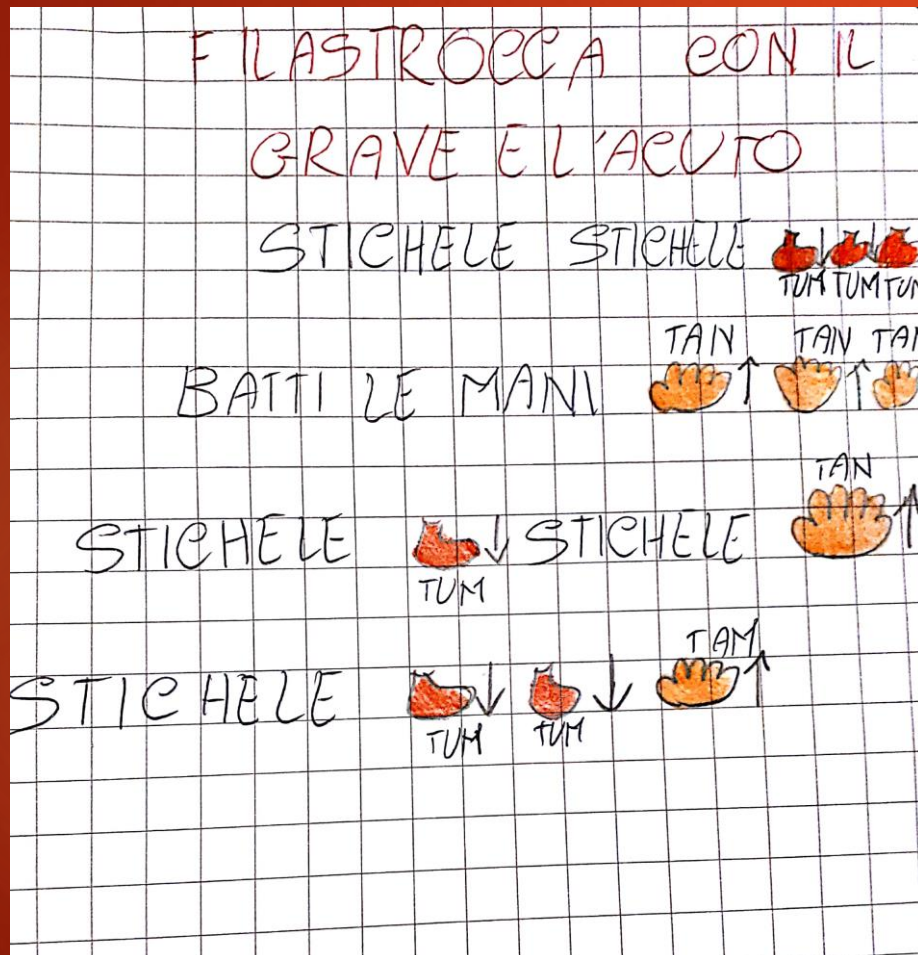 FILASTROCCA CON IL
GRAVE E L'ACUTO
STICHELE STICHELE
TUM TUM TUM
TAN TAN TAN
BATTI LE MANI
TAN
STICHELE STICHELE
TUM
TAM
STICHELE
TUM TUM